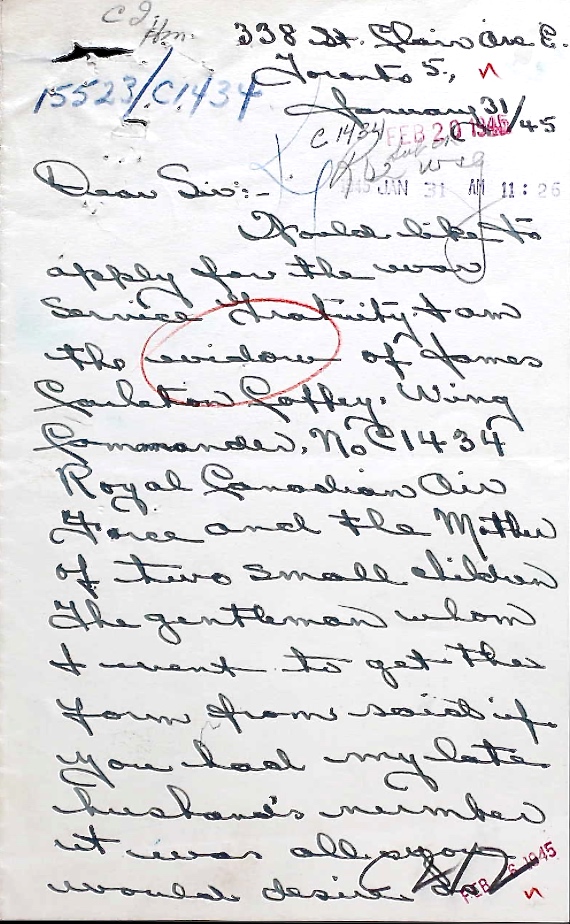 338 St. Clair Ave E.
Toronto 5,
15523/C1434
January 31/45
C 1434
FEB 20 1945
1945 JAN 31 AM 11:26
Dear Sir:-
Would like to
apply for the war
Service Gratuity I am
the widow of James
Carleton Coffey. Wing
Commander, No C1434
Royal Canadian Air
Force and the Mother
of two small children
The gentleman whom
I went to get the
form from said if
you had my late
husband's number
it was all you
would desire so
FEB 6 1945